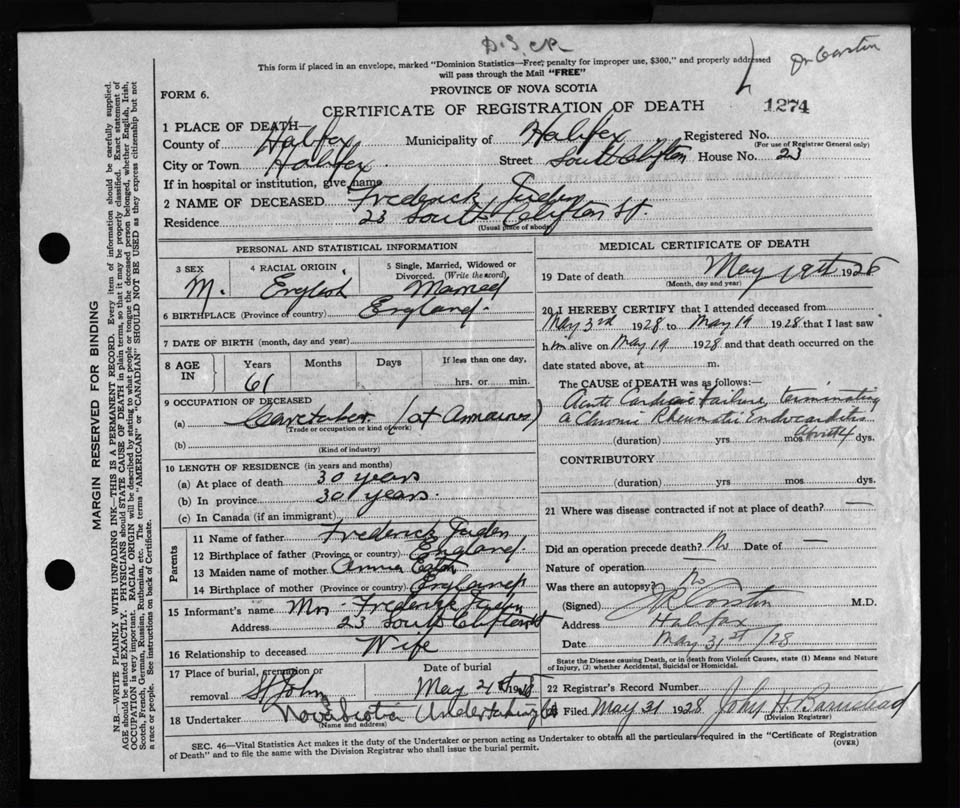 D.S. CR
Dr Corstin
This form if placed in an envelope, marked "Dominion Statistics—Free, penalty for improper use, $300," and properly addressed
will pass through the Mail "FREE"
PROVINCE OF NOVA SCOTIA
FORM 6.
CERTIFICATE OF REGISTRATION OF DEATH
1274
1 PLACE OF DEATH—
County of Halifax Municipality of Halifax Registered No.
(For use of Registrar General only)
City or Town Halifax Street South Clifton House No. 23
If in hospital or institution, give name
2 NAME OF DECEASED Frederick
Residence 23 South Clifton St.
(Usual place of abode)
PERSONAL AND STATISTICAL INFORMATION
3 SEX M.
4 RACIAL ORIGIN English
5 Single, Married, Widowed or Divorced. (Write the word) Married
6 BIRTHPLACE (Province or country) England.
7 DATE OF BIRTH (month, day and year)
8 AGE IN Years Months Days If less than one day,
61 hrs. or min.
9 OCCUPATION OF DECEASED
(a) Caretaker (at Armouries)
(Trade or occupation or kind of work)
(b)
(Kind of industry)
10 LENGTH OF RESIDENCE (in years and months)
(a) At place of death 30 years
(b) In province 30 years.
(c) In Canada (if an immigrant)
Parents
11 Name of father Frederick
12 Birthplace of father (Province or country) England.
13 Maiden name of mother Annie Eaton
14 Birthplace of mother (Province or country) England
15 Informant's name Mrs. Frederick
Address 23 South Clifton St
16 Relationship to deceased Wife
17 Place of burial, cremation or removal St John Date of burial May 21st 1928
18 Undertaker Nova Scotia Undertaking Co
(Name and address)
MEDICAL CERTIFICATE OF DEATH
19 Date of death May 19th 1928
(Month, day and year)
20 I HEREBY CERTIFY that I attended deceased from
May 3rd 1928 to May 19 1928 that I last saw
him alive on May 19 1928 and that death occurred on the
date stated above, at m.
The CAUSE of DEATH was as follows:—
Acute Cardiac Failure, terminating
a Chronic Rheumatic Endocarditis
(duration) yrs mos dys.
CONTRIBUTORY
(duration) yrs mos. dys.
21 Where was disease contracted if not at place of death? —
Did an operation precede death? No Date of —
Nature of operation —
Was there an autopsy? No
(Signed) Corstin M.D.
Address Halifax
Date May 31st /28
State the Disease causing Death, or in death from Violent Causes, state (1) Means and Nature
of Injury, (2) whether Accidental, Suicidal or Homicidal.
22 Registrar's Record Number
Filed May 31 1928 John H. Barnstead
(Division Registrar)
SEC. 46—Vital Statistics Act makes it the duty of the Undertaker or person acting as Undertaker to obtain all the particulars required in the "Certificate of Registration
of Death" and to file the same with the Division Registrar who shall issue the burial permit.
(OVER)
MARGIN RESERVED FOR BINDING
N.B. WRITE PLAINLY WITH UNFADING INK—THIS IS A PERMANENT RECORD. Every item of information should be carefully supplied.
AGE should be stated EXACTLY. PHYSICIANS should STATE CAUSE OF DEATH in plain terms, so that it may be properly classified. Exact statement of
OCCUPATION is very important. RACIAL ORIGIN will be described by stating to what people or tongue the deceased person belonged, whether English, Irish,
Scotch, French, German, Russian, Ruthenian, etc. The terms "AMERICAN" or "CANADIAN" SHOULD NOT BE USED as they express citizenship but not
a race or people. See instructions on back of Certificate.